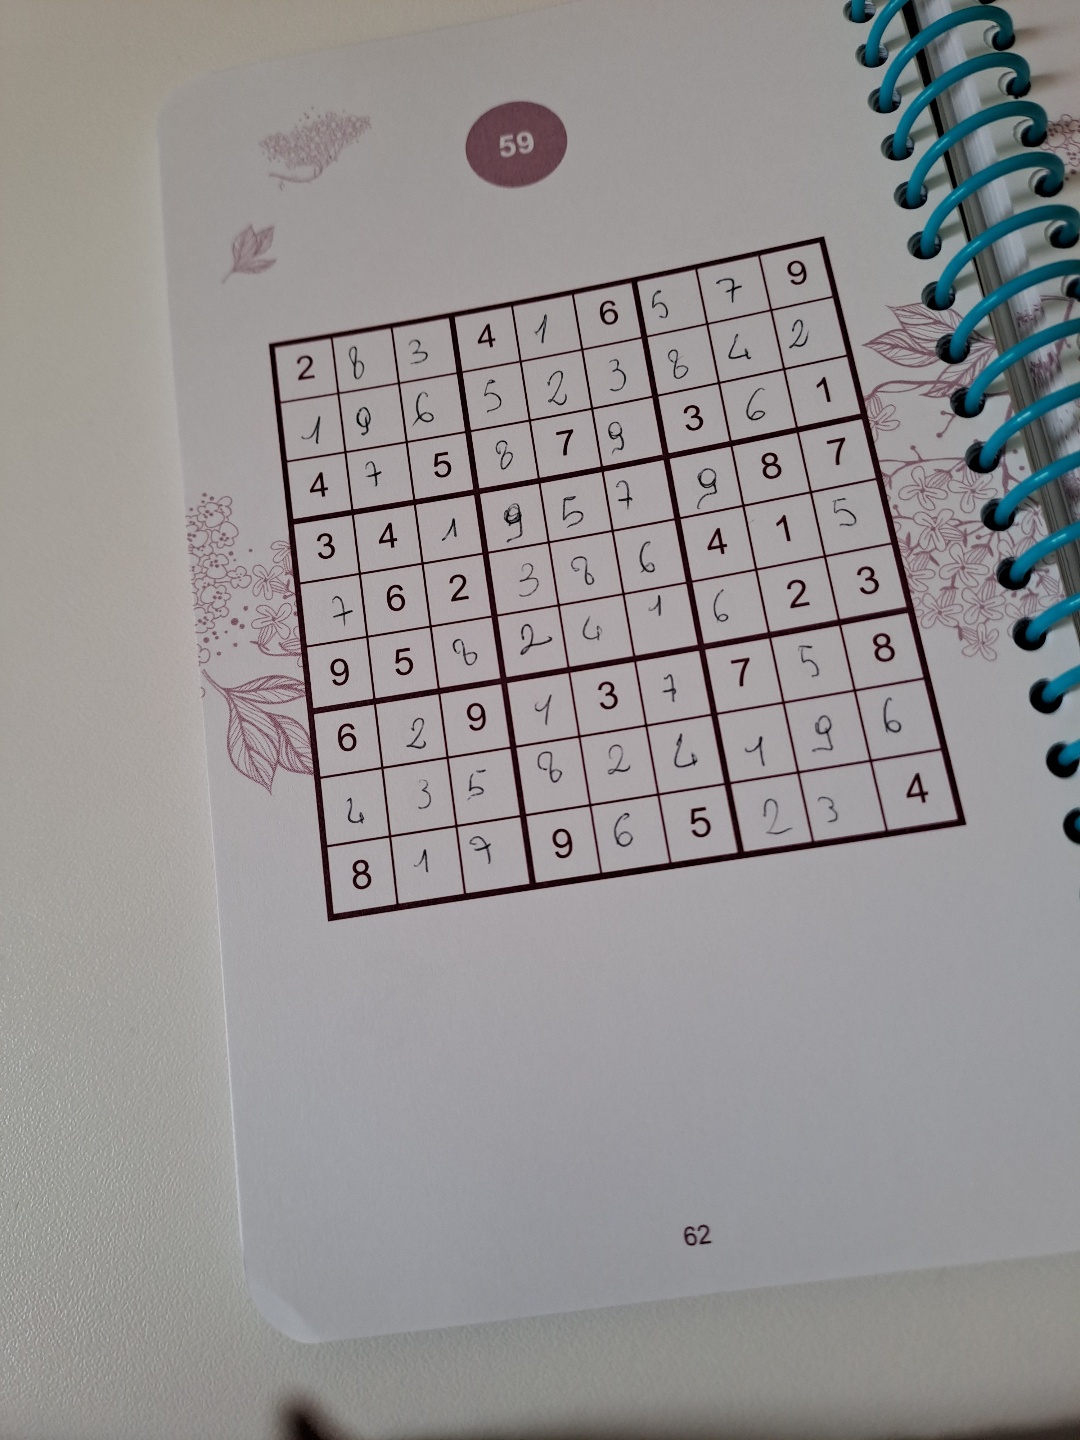 59
2 8 3 4 1 6 5 7 9
1 9 6 5 2 3 8 4 2
4 7 5 8 7 9 3 6 1
3 4 1 9 5 7 9 8 7
7 6 2 3 8 6 4 1 5
9 5 8 2 4 1 6 2 3
6 2 9 1 3 7 7 5 8
4 3 5 8 2 4 1 9 6
8 1 7 9 6 5 2 3 4
62